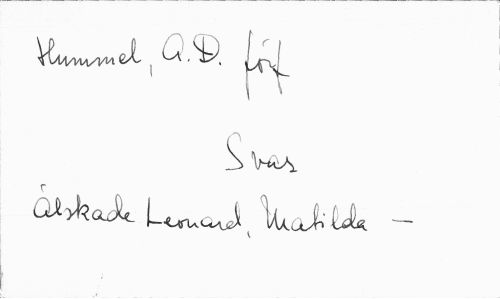 Hummel, A.D. förf
Svar
Älskade Leonard, Matilda —